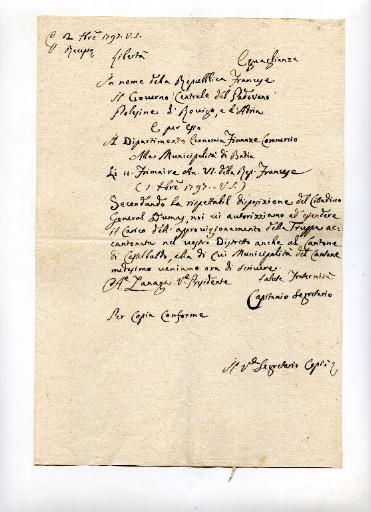 2 Xbre 1797. V.S.
Libertà Eguaglianza
In nome della Republica Francese
Il Governo Centrale del Padovano
Polesine di Rovigo, e d'Adria
E per esso
Il Dipartimento Economia Finanze Commercio
Alla Municipalità di Badia
Li 11 Frimaire An. VI della Rep. Francese
(1. Xbre 1797. V.S.)
Secondando la rispettabil disposizione del Cittadino
General Dumas, noi vi autorizziamo ad estendere
il Carico dell' approvigionamento della Truppa ac-
cantonata nel vostro Distretto anche al Cantone
di Castelbaldo, alla di cui Municipalità del Cantone
medesimo veniamo ora di scrivere.
Salute Fraternità
Zanazzo V. Presidente
Capitanio Segretario
Per Copia Conforme
Il V. Segretario